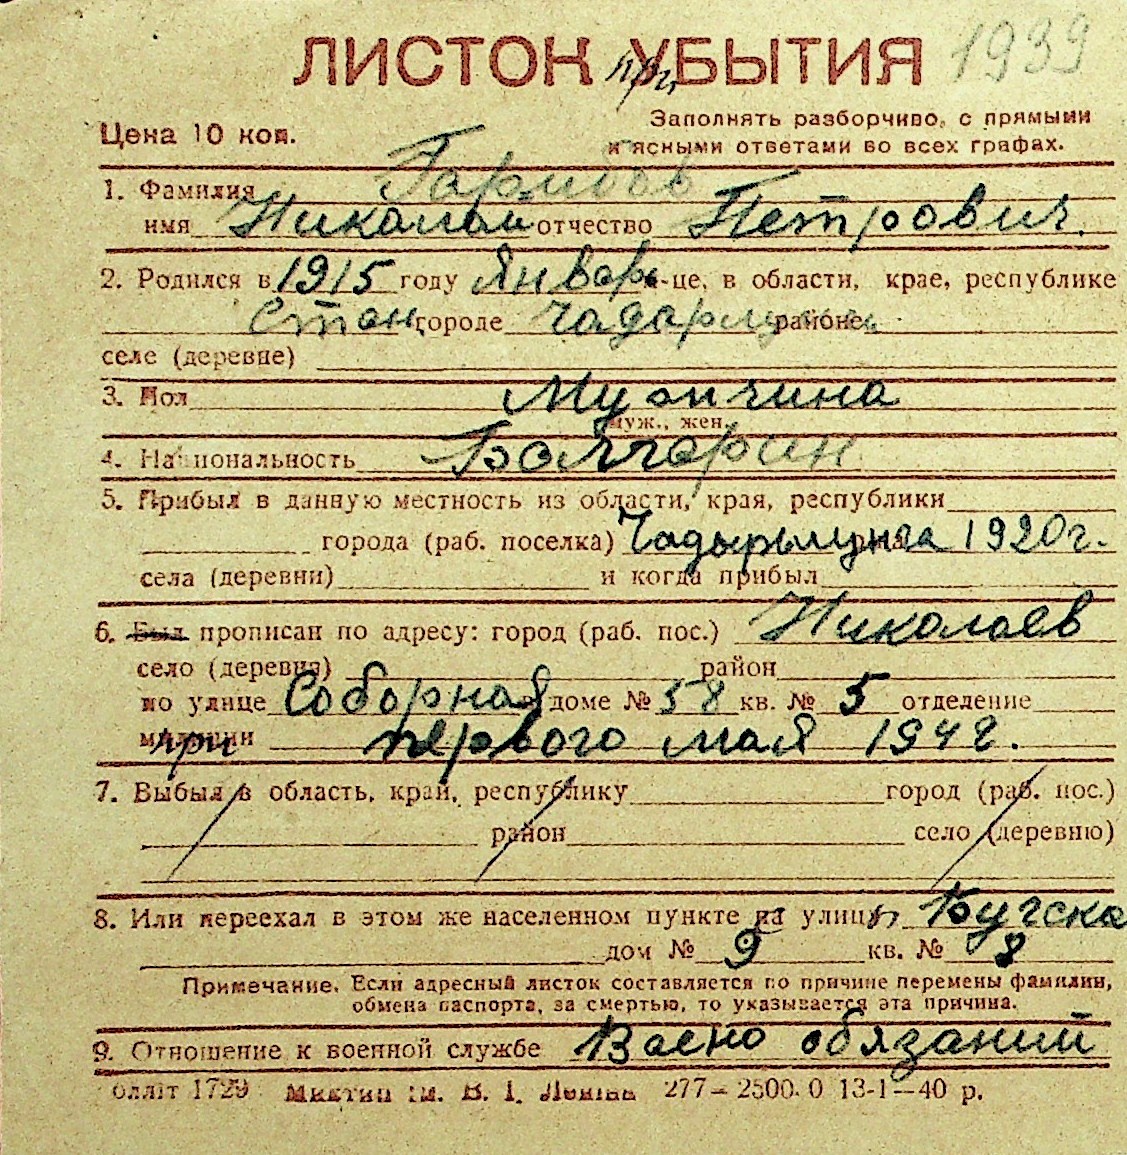 ЛИСТОК УБЫТИЯ при 1939
Цена 10 коп.
Заполнять разборчиво, с прямыми
и ясными ответами во всех графах.
1. Фамилия Гарибов
имя Николай отчество Петрович.
2. Родился в 1915 году Январь м-це, в области, крае, республике
Стан. городе районе
селе (деревне)
3. Пол Мужчина
муж., жен.
4. Национальность Болгарин
5. Прибыл в данную местность из области, края, республики
города (раб. поселка) Чадырлунга 1920 г.
села (деревни) и когда прибыл
6. Был прописан по адресу: город (раб. пос.) Николаев
село (деревня) район
по улице Соборная в доме № 58 кв. № 5 отделение
милиции при первого мая 1942.
7. Выбыл в область, край, республику город (раб. пос.)
район село (деревню)
8. Или переехал в этом же населенном пункте на улицу Бугска
дом № 9 кв. № 8
Примечание. Если адресный листок составляется по причине перемены фамилии,
обмена паспорта, за смертью, то указывается эта причина.
9. Отношение к военной службе Воено обязаний
1729 В. І. 277–2500. 0 13-1–40 р.